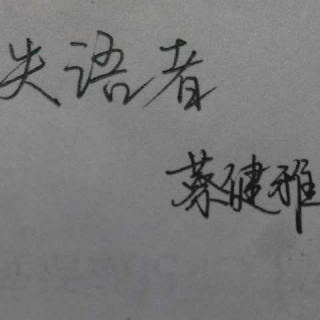 失语者
蔡健雅